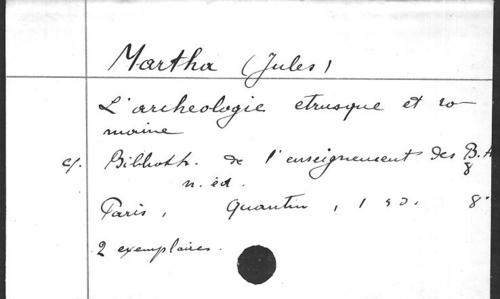 Martha (Jules)
L'archeologie etrusque et ro
maine
Biblioth. de l'enseignement des B. A
8
n. éd.
Paris, Quantin, s. d. 8°
2 exemplaires.